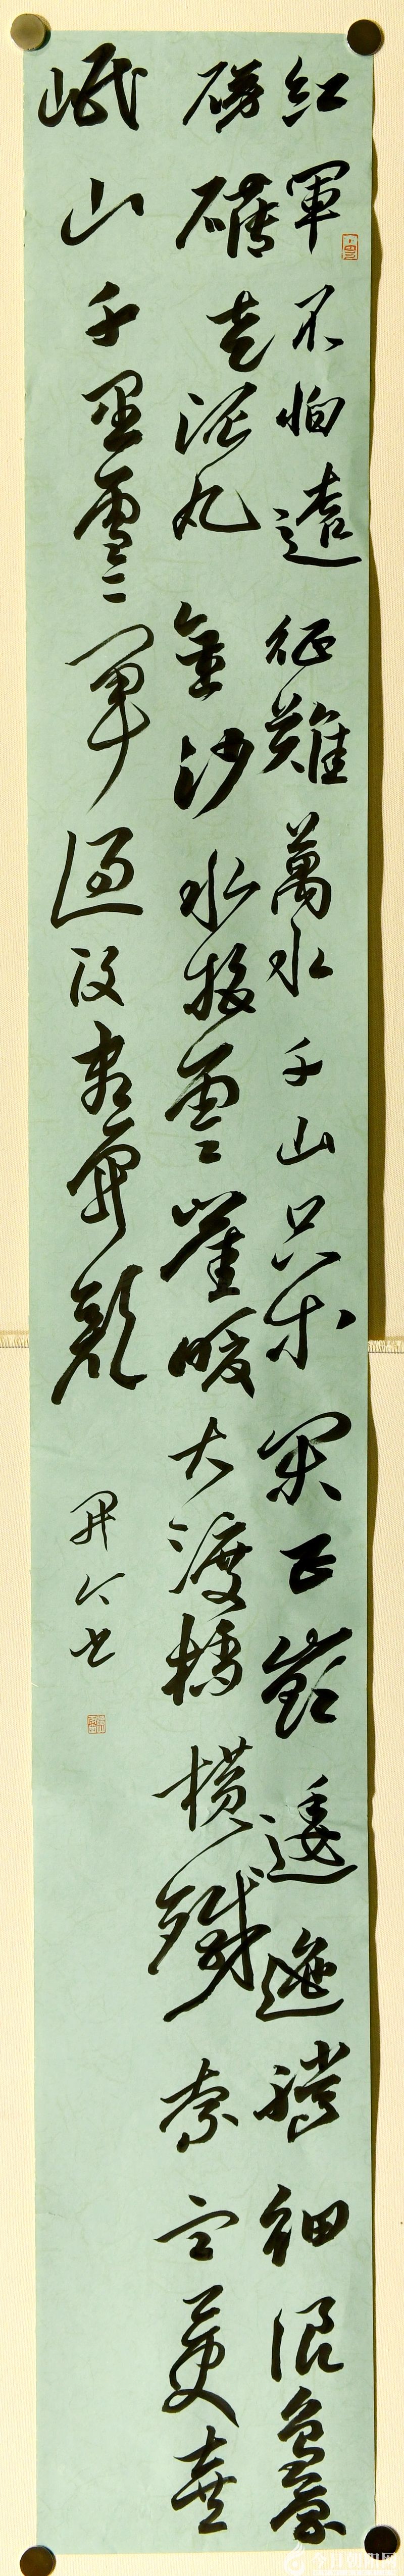 紅軍不怕遠征難萬水千山只等閑五嶺逶迤騰細浪烏蒙
磅礴走泥丸金沙水拍雲崖暖大渡橋橫鐵索寒更喜
岷山千里雪三軍過後盡開顏
书
今日朝阳网